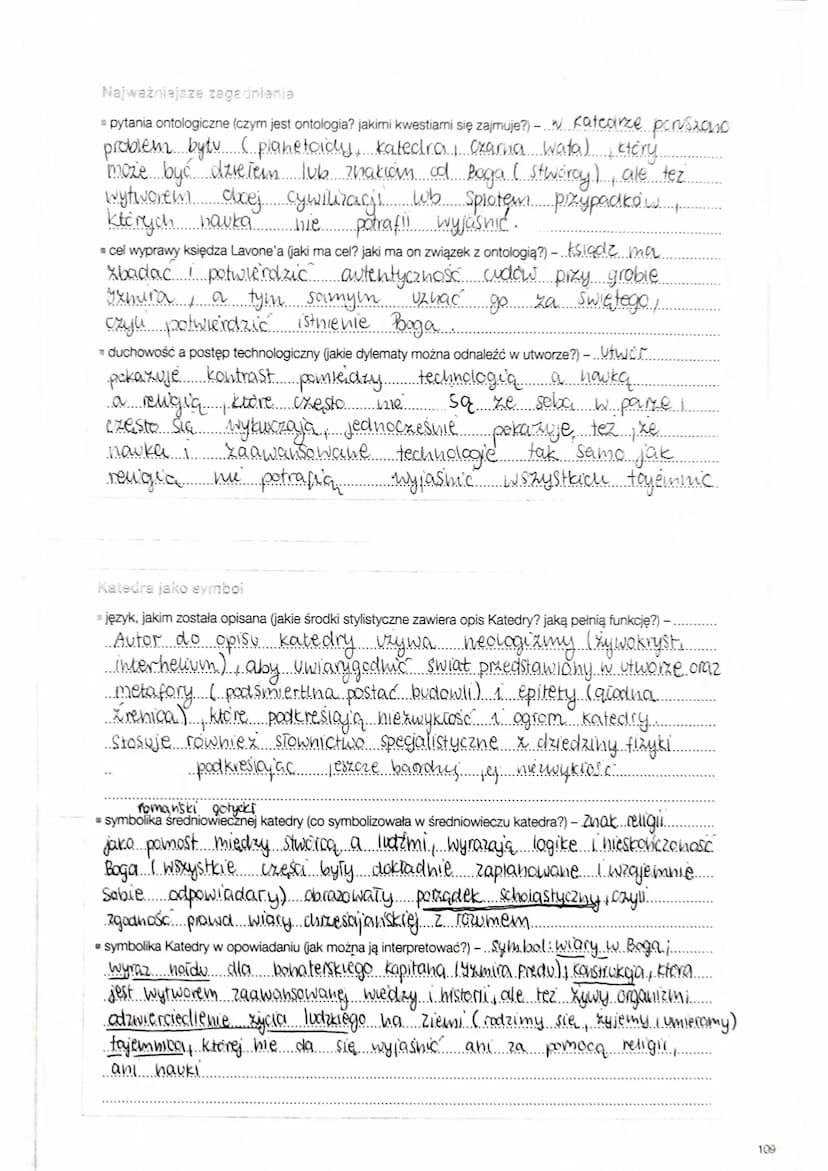 Najważniejsze zagadnienia
▪ pytania ontologiczne (czym jest ontologia? jakimi kwestiami się zajmuje?) – w Katedrze poruszono
problem bytu (planetoidy, katedra, czarna wata), który
może być dziełem lub znakiem od Boga (stwórcy), ale też
wytworem obcej cywilizacji lub splotem przypadków,
których nauka nie potrafii wyjaśnić.
▪ cel wyprawy księdza Lavone'a (jaki ma cel? jaki ma on związek z ontologią?) – ksiądz ma
zbadać i potwierdzić autentyczność cudów przy grobie
Izmira, a tym samym uznać go za świętego,
czyli potwierdzić istnienie Boga.
▪ duchowość a postęp technologiczny (jakie dylematy można odnaleźć w utworze?) – utwór
pokazuje kontrast pomiędzy technologią a nauką
a religią, które często nie są ze sobą w parze i
często się wykluczają, jednocześnie pokazuje też, że
nauka i zaawansowane technologie tak samo jak
religia nie potrafią wyjaśnić wszystkich tajemnic
Katedra jako symbol
▪ język, jakim została opisana (jakie środki stylistyczne zawiera opis Katedry? jaką pełnią funkcję?) –
Autor do opisu katedry używa neologizmy (żywokryst,
interhelium), aby uwiarygodnić świat przedstawiony w utworze oraz
metafory (podśmiertlna postać budowli) i epitety (głodna
źrenica), które podkreślają niezwykłość i ogrom katedry.
Stosuje również słownictwo specjalistyczne z dziedziny fizyki
podkreślając jeszcze bardziej jej niezwykłość
romański gotycki
▪ symbolika średniowiecznej katedry (co symbolizowała w średniowieczu katedra?) – znak religii
jako pomost między stwórcą a ludźmi, wyrażają logikę i nieskończoność
Boga (wszystkie części były dokładnie zaplanowane i wzajemnie
sobie odpowiadały) obrazowały porządek scholastyczny, czyli
zgodność prawd wiary chrześcijańskiej z rozumem
▪ symbolika Katedry w opowiadaniu (jak można ją interpretować?) – symbol: wiary w Boga;
wyraz hołdu dla bohaterskiego kapitana (Izmira Predu), konstrukcja, która
jest wytworem zaawansowanej wiedzy i historii, ale też żywy organizm;
odzwierciedlenie życia ludzkiego na ziemi (rodzimy się, żyjemy i umieramy)
tajemnica, której nie da się wyjaśnić ani za pomocą religii,
ani nauki
109